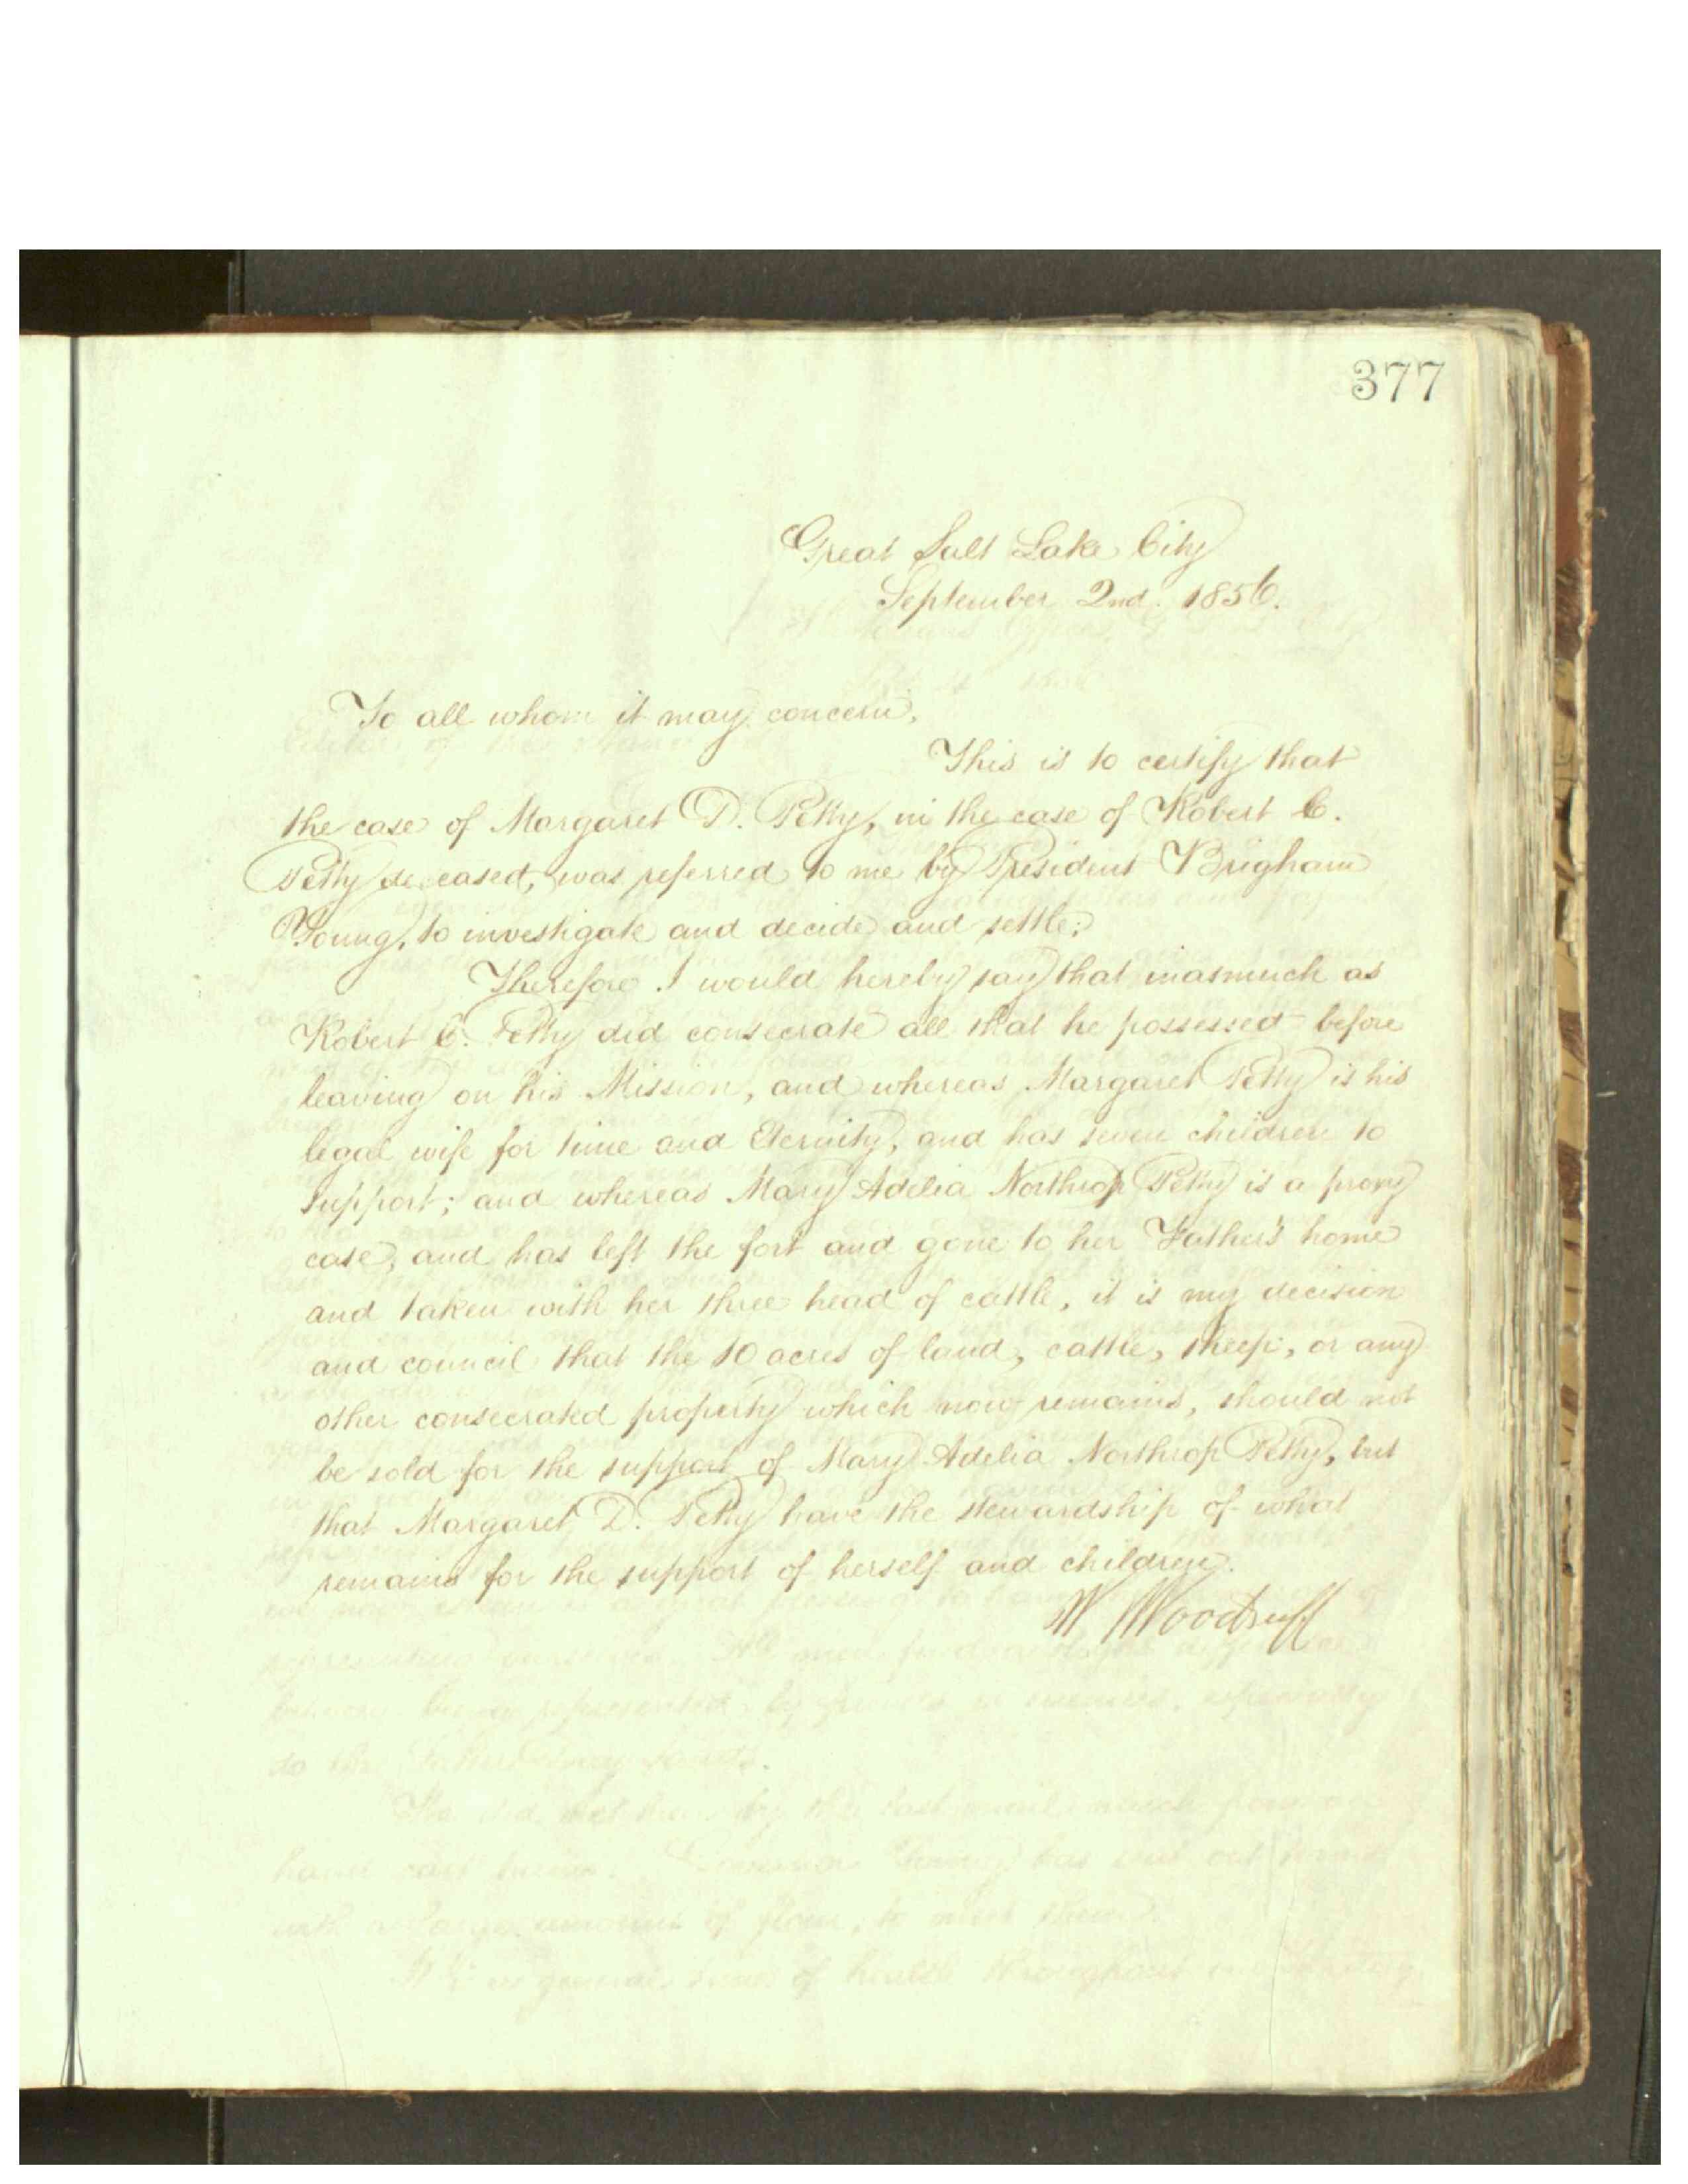 377
Great Salt Lake City
September 2nd. 1856.
To all whom it may concern,
This is to certify that
the case of Margaret D. Petty, in the case of Robert C.
Petty deceased, was referred to me by President Brigham
Young, to investigate and decide and settle;
Therefore I would hereby say that inasmuch as
Robert C. Petty did consecrate all that he possessed before
leaving on his Mission, and whereas Margaret Petty is his
legal wife for time and Eternity, and has seven children to
support; and whereas Mary Adelia Northrop Petty is a proxy
case, and has left the fort and gone to her Father's home
and taken with her three head of cattle, it is my decision
and council that the 10 acres of land, cattle, sheep, or any
other consecrated property which now remains, should not
be sold for the support of Mary Adelia Northrop Petty, but
that Margaret D. Petty have the stewardship of what
remains for the support of herself and children.
W Woodruff